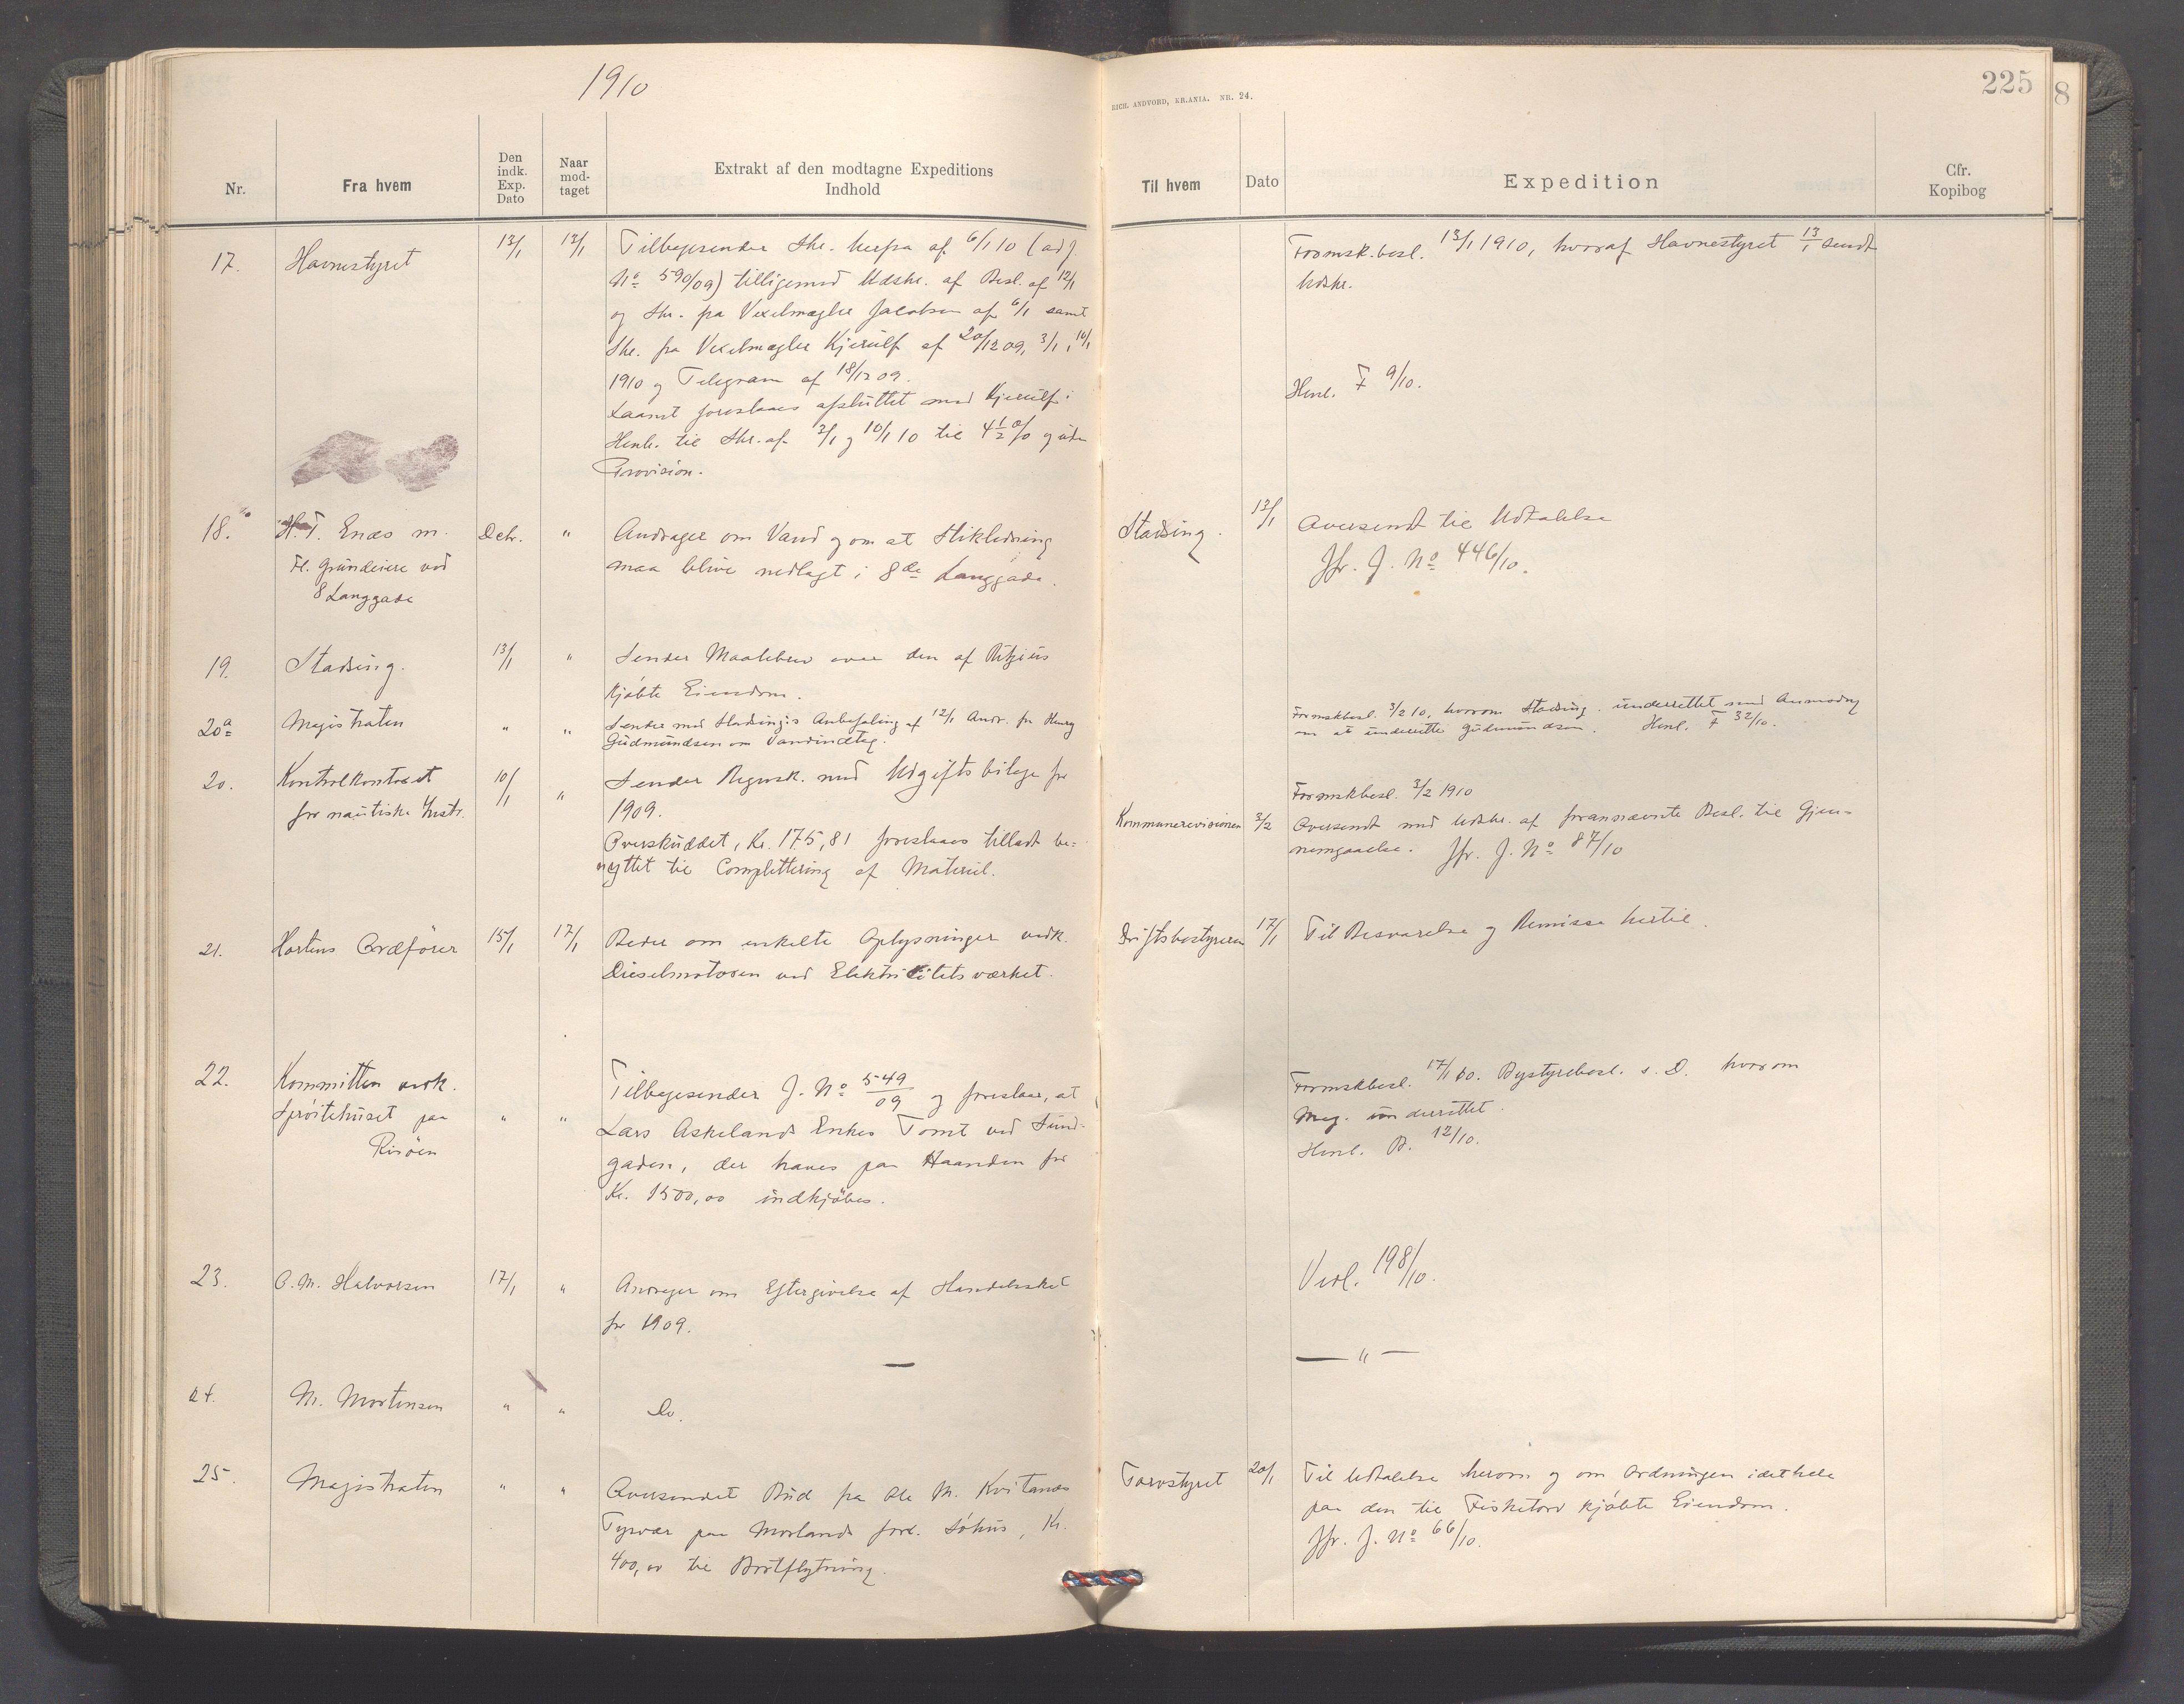 1910
RICH. ANDVORD, KR.ANIA. NR. 24.
225
8
Nr.
Fra hvem
Den indk. Exp. Dato
Naar mod-taget
Extrakt af den modtagne Expeditions Indhold
Til hvem
Dato
Expedition
Cfr. Kopibog
17. Havnestyret 13/1 13/1
Tilbagesender Skr. herfra af 6/1 10 (ad J.
No 590/09) tilligemed Udskr. af Besl. af 12/1
og Skr. fra Vexelmægler Jacobsen af 6/1 samt
Skr. fra Vexelmægler Kjerulf af 20/12 09, 3/1, 10/1
1910 og Telegram af 18/12 09.
Laanet foreslaaes afsluttet med Kjerulf i
Henh. til Skr. af 3/1 og 10/1 10 til 4 1/2 % og uden
Provision.
Formsk.besl. 13/1 1910, hvoraf Havnestyret 13/1 sendt
Udskr.
Henl. F 9/10.
18. H. T. Enæs m.
Fl. Grundeiere ved
8 Langgade
Debr. "
Andrager om Vand og om at Stikledning
maa blive nedlagt i 8de Langgade.
Stadsing. 13/1 Oversendt til Udtalelse
Jfr. J. No 446/10.
19. Stadsing. 13/1 "
Sender Maalebrev over den af
kjøbte Eiendom.
20a Magistraten " "
Sender med Stadsing's Anbefaling af 12/1 Andr. fra Henry
Gudmundsen om Vandindtag.
Formskbesl. 3/2 10, hvorom Stadsing. underrettet med Anmodng
om at underrette Gudmundsen. Henl. F 32/10.
20. Kontrolkontoret
for nautiske Instr.
10/1 "
Sender Regnsk. med Udgiftsbilage for
1909.
Overskuddet, Kr. 175,81 foreslaaes tilladt be-
nyttet til Complettering af Materiel.
Formskbesl. 3/2 1910
Kommunerevisionen 3/2 Oversendt med Udskr. af forannævnte Besl. til Gjen-
nemgaaelse. Jfr. J. No 87/10
21. Hortens Ordfører 15/1 17/1
Beder om enkelte Oplysninger vedk.
Dieselmotoren ved Elektricitetsværket.
Driftsbestyreren 17/1 Til Besvarelse og Remisse hertil.
22. Kommitten vedk.
Sprøitehuset paa
Risøen
" "
Tilbagesender J. No 549/09 og foreslaar, at
Lars Askelands Enkes Tomt ved Sund-
gaden, der haves paa Haanden for
Kr. 1500,00 indkjøbes.
Formskbesl. 17/1 10. Bystyrebesl. s. D. hvorom
Mag. underrettet.
Henl. B. 12/10.
23. O. M. Halvorsen 17/1 "
Andrager om Eftergivelse af Handelsskat
for 1909.
Vedl. 198/10.
24. M. Mortensen " "
Do.
— " —
25. Magistraten " "
Oversendet Bud fra Ole M. Kvitanæs
Tysvær paa Morlands ford. Søhus, Kr.
400,00 til Bortflytning.
Torvstyret 20/1 Til Udtalelse herom og om Ordningen idethele
paa den til Fisketorv kjøbte Eiendom.
Jfr. J. No 66/10.